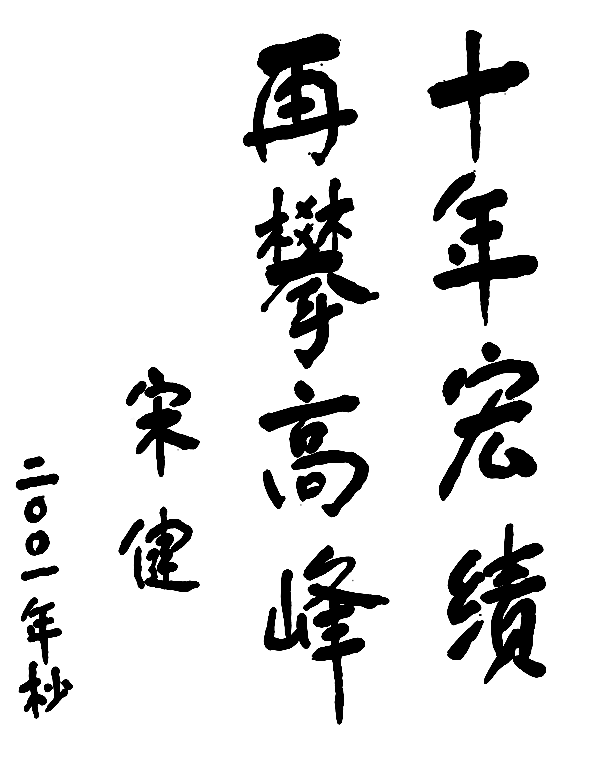 十年宏绩
再攀高峰
宋健
二〇〇一年杪